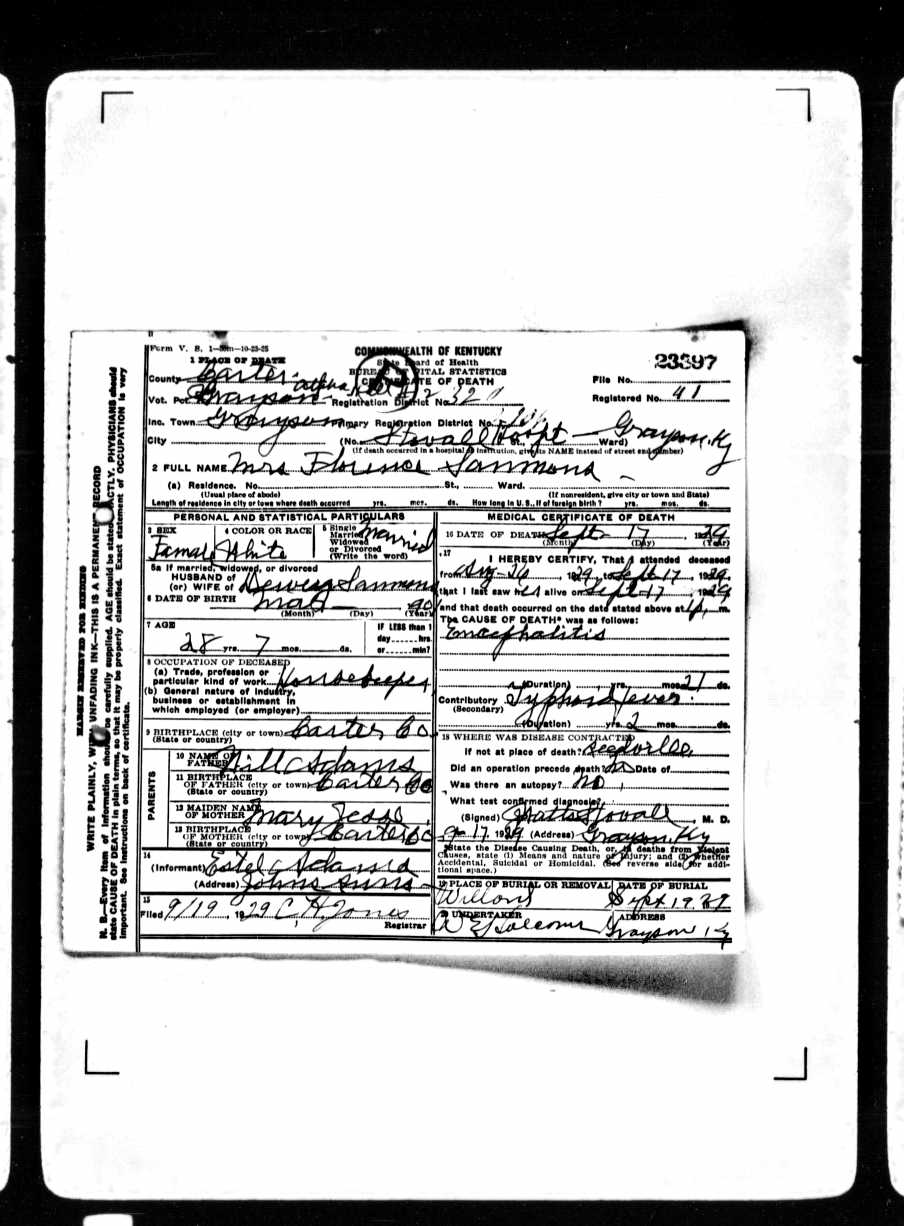 MARGIN RESERVED FOR BINDING
WRITE PLAINLY, WITH UNFADING INK—THIS IS A PERMANENT RECORD
N. B.—Every item of information should be carefully supplied. AGE should be stated EXACTLY. PHYSICIANS should
state CAUSE OF DEATH in plain terms, so that it may be properly classified. Exact statement of OCCUPATION is very
important. See instructions on back of certificate.
Form V. S. 1 10-23-25
COMMONWEALTH OF KENTUCKY
State Board of Health
BUREAU OF VITAL STATISTICS
CERTIFICATE OF DEATH
1 PLACE OF DEATH
County Carter
File No. 23397
Vot. Pct. Grayson Registration District No.
Registered No. 41
Inc. Town Grayson Primary Registration District No.
City (No. Stovall Hospt St., Ward) Grayson, Ky
(If death occurred in a hospital or institution, give its NAME instead of street and number)
2 FULL NAME Mrs Florence Sammons
(a) Residence. No. St., Ward.
(Usual place of abode) (If nonresident, give city or town and State)
Length of residence in city or town where death occurred yrs. mos. ds. How long in U. S., if of foreign birth? yrs. mos. ds.
PERSONAL AND STATISTICAL PARTICULARS
3 SEX
Famale
4 COLOR OR RACE
White
5 Single
Married
Widowed
or Divorced
(Write the word)
Married
5a If married, widowed, or divorced
HUSBAND of
(or) WIFE of Dewey Sammons
6 DATE OF BIRTH
(Month) (Day) (Year)
7 AGE
28 yrs. 7 mos. ds.
IF LESS than 1
day hrs.
or min?
8 OCCUPATION OF DECEASED
(a) Trade, profession or
particular kind of work Housekeeper
(b) General nature of industry,
business or establishment in
which employed (or employer)
9 BIRTHPLACE (city or town) Carter Co
(State or country)
PARENTS
10 NAME OF
FATHER Will Adams
11 BIRTHPLACE
OF FATHER (city or town) Carter Co
(State or country)
12 MAIDEN NAME
OF MOTHER Mary
13 BIRTHPLACE
OF MOTHER (city or town) Carter Co
(State or country)
14
(Informant) Estel Adams
(Address) Johns Runs
15
Filed 9/19, 1929 C H Jones
Registrar
MEDICAL CERTIFICATE OF DEATH
16 DATE OF DEATH Sept 17, 1929
(Month) (Day) (Year)
17
I HEREBY CERTIFY, That I attended deceased
from Aug-26, 1929, to Sept 17, 1929,
that I last saw her alive on Sept 17, 1929
and that death occurred on the date stated above at m.
The CAUSE OF DEATH* was as follows:
Encephalitis
(Duration) yrs. mos. 21 ds.
Contributory Typhoid fever
(Secondary)
(Duration) yrs. 2 mos. ds.
18 WHERE WAS DISEASE CONTRACTED
If not at place of death?
Did an operation precede death? No Date of
Was there an autopsy? No
What test confirmed diagnosis?
(Signed) Stovall, M. D.
17 1929 (Address) Grayson, Ky
*State the Disease Causing Death, or, in deaths from Violent
Causes, state (1) Means and nature of Injury; and (2) whether
Accidental, Suicidal or Homicidal. (See reverse side for addi-
tional space.)
19 PLACE OF BURIAL OR REMOVAL
DATE OF BURIAL
Sept 19, 29
20 UNDERTAKER
ADDRESS
Grayson, Ky